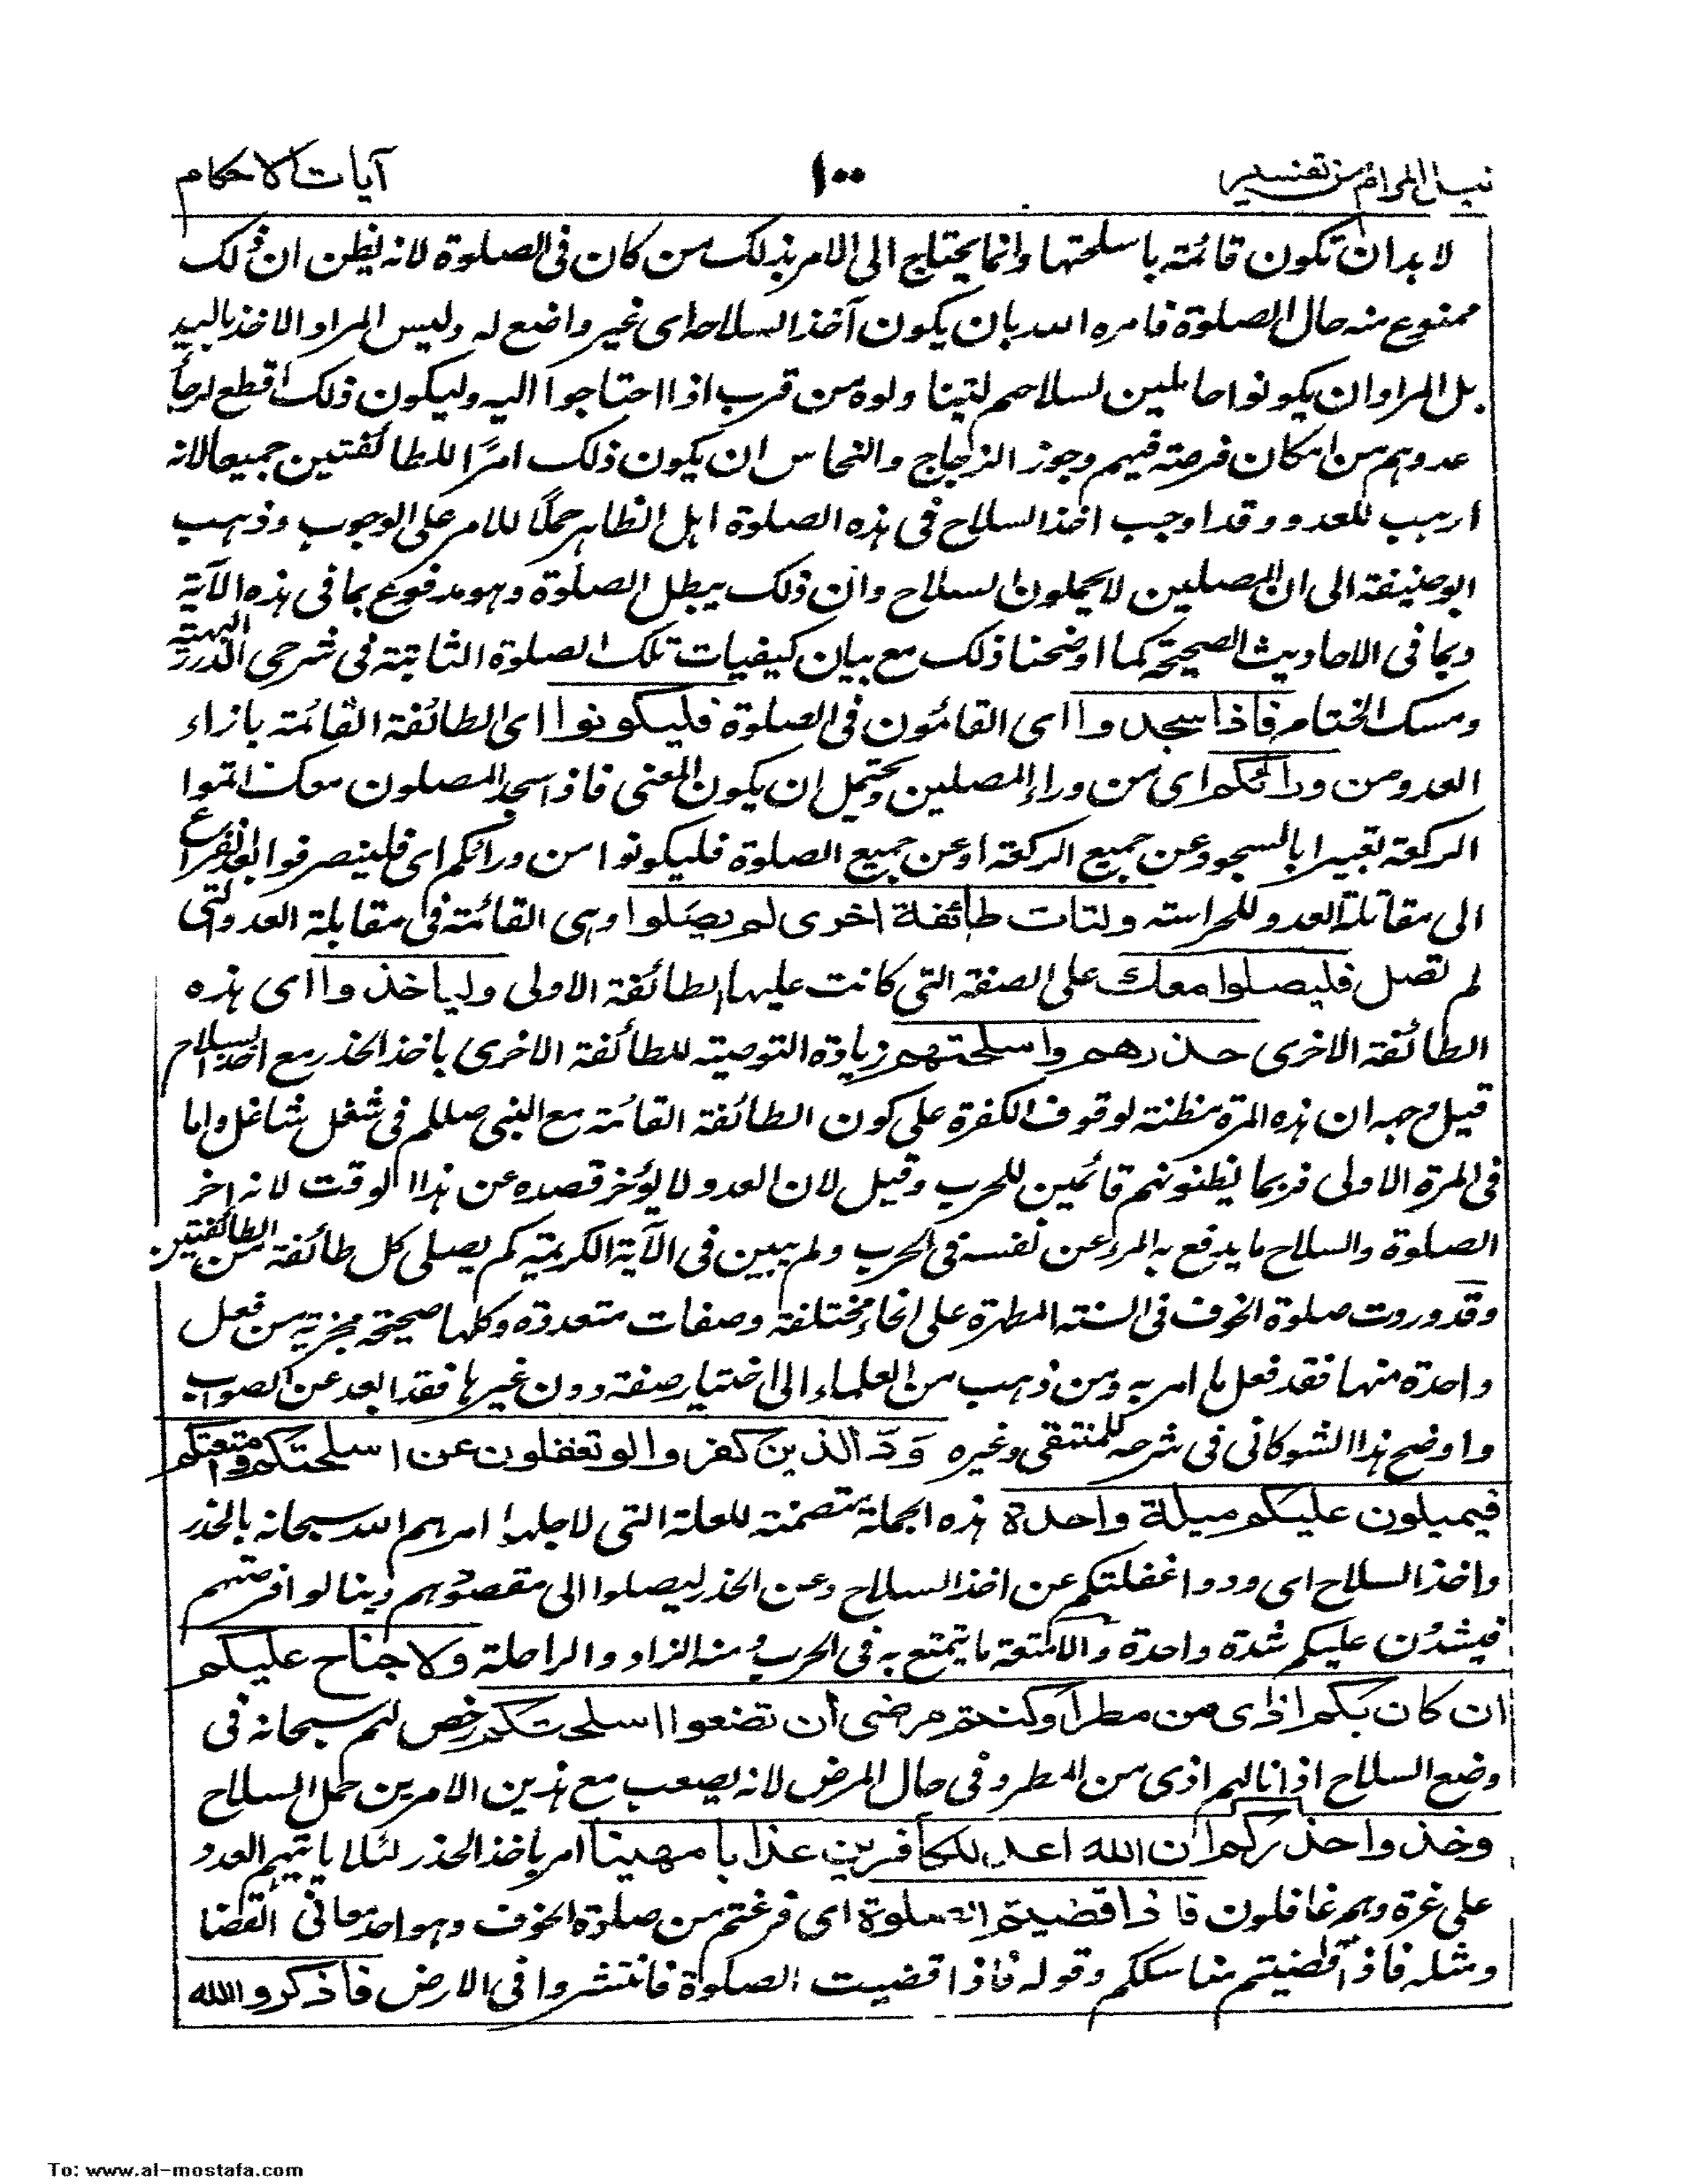 نيل المرام من تفسير
١٠٠
آيات الاحكام
لا بد ان تكون قائمة باسلحتها وانما يحتاج الى الامر بذلك من كان فى الصلوة لانه يظن ان ذلك
ممنوع منه حال الصلوة فامره الله بان يكون آخذ السلاحه اى غير واضع له وليس المراد الاخذ باليد
بل المراد ان يكونوا حاملين لسلاحهم ليتناولوه من قرب اذا احتاجوا اليه وليكون ذلك اقطع لرجأ
عدوهم من امكان فرصته فيهم وجوز الزجاج والنحاس ان يكون ذلك امرًا للطائفتين جميعا لانه
ارهب للعدو وقد اوجب اخذ السلاح فى هذه الصلوة اهل الظاهر حملًا للامر على الوجوب وذهب
ابو حنيفة الى ان المصلين لا يحملون السلاح وان ذلك يبطل الصلوة وهو مدفوع بما فى هذه الآية
وبما فى الاحاديث الصحيحة كما اوضحنا ذلك مع بيان كيفيات تلك الصلوة الثابتة فى شرحى الدرر البهية
ومسك الختام فاذا سجدوا اى القائمون فى الصلوة فليكونوا اى الطائفة القائمة بازاء
العدو من ورائكم اى من وراء المصلين ويحتمل ان يكون المعنى فاذا سجد المصلون معك اتموا
الركعة تعبيرا بالسجود عن جميع الركعة او عن جميع الصلوة فليكونوا من ورائكم اى فلينصرفوا بعد الفراغ
الى مقابلة العدو للحراسة ولتات طائفة اخرى لم يصلوا وهى القائمة فى مقابلة العدو التى
لم تصل فليصلوا معك على الصفة التى كانت عليها الطائفة الاولى ولياخذوا اى هذه
الطائفة الاخرى حذرهم واسلحتهم زيادة التوصية للطائفة الاخرى باخذ الحذر مع اخذ السلاح
قيل وجهه ان هذه المرة مظنة لوقوف الكفرة على كون الطائفة القائمة مع النبى صللم فى شغل شاغل واما
فى المرة الاولى فربما يظنونهم قائمين للحرب وقيل لان العدو لا يؤخر قصده عن هذا الوقت لانه اخر
الصلوة والسلاح ما يدفع به المرء عن نفسه فى الحرب ولم يبين فى الآية الكريمة كم يصلى كل طائفة من الطائفتين
وقد وردت صلوة الخوف فى السنة المطهرة على انحاء مختلفة وصفات متعددة وكلها صحيحة مجزية من فعل
واحدة منها فقد فعل ما امر به ومن ذهب من العلماء الى اختيار صفة دون غيرها فقد ابعد عن الصواب
واوضح هذا الشوكانى فى شرحه للمنتقى وغيره وَدّ الذين كفروا لو تغفلون عن اسلحتكم وامتعتكم
فيميلون عليكم ميلة واحدة هذه الجملة متضمنة للعلة التى لاجلها امرهم الله سبحانه بالحذر
واخذ السلاح اى ودوا غفلتكم عن اخذ السلاح وعن الحذر ليصلوا الى مقصودهم وينالوا فرصتهم
فيشدن عليكم شدة واحدة والامتعة ما يتمتع به فى الحرب ومنه الزاد والراحلة ولا جناح عليكم
ان كان بكم اذى من مطر او كنتم مرضى ان تضعوا اسلحتكم رخص لهم سبحانه فى
وضع السلاح اذا نالهم اذى من المطر وفى حال المرض لانه يصعب مع هذين الامرين حمل السلاح
وخذوا حذركم ان الله اعد للكافرين عذابا مهينا امر باخذ الحذر لئلا ياتيهم العدو
على غرة وهم غافلون فاذا قضيتم الصلوة اى فرغتم من صلوة الخوف وهو احد معانى القضا
ومثله فاذا قضيتم مناسككم وقوله فاذا قضيت الصلوة فانتشروا فى الارض فاذكروا الله
To: www.al-mostafa.com